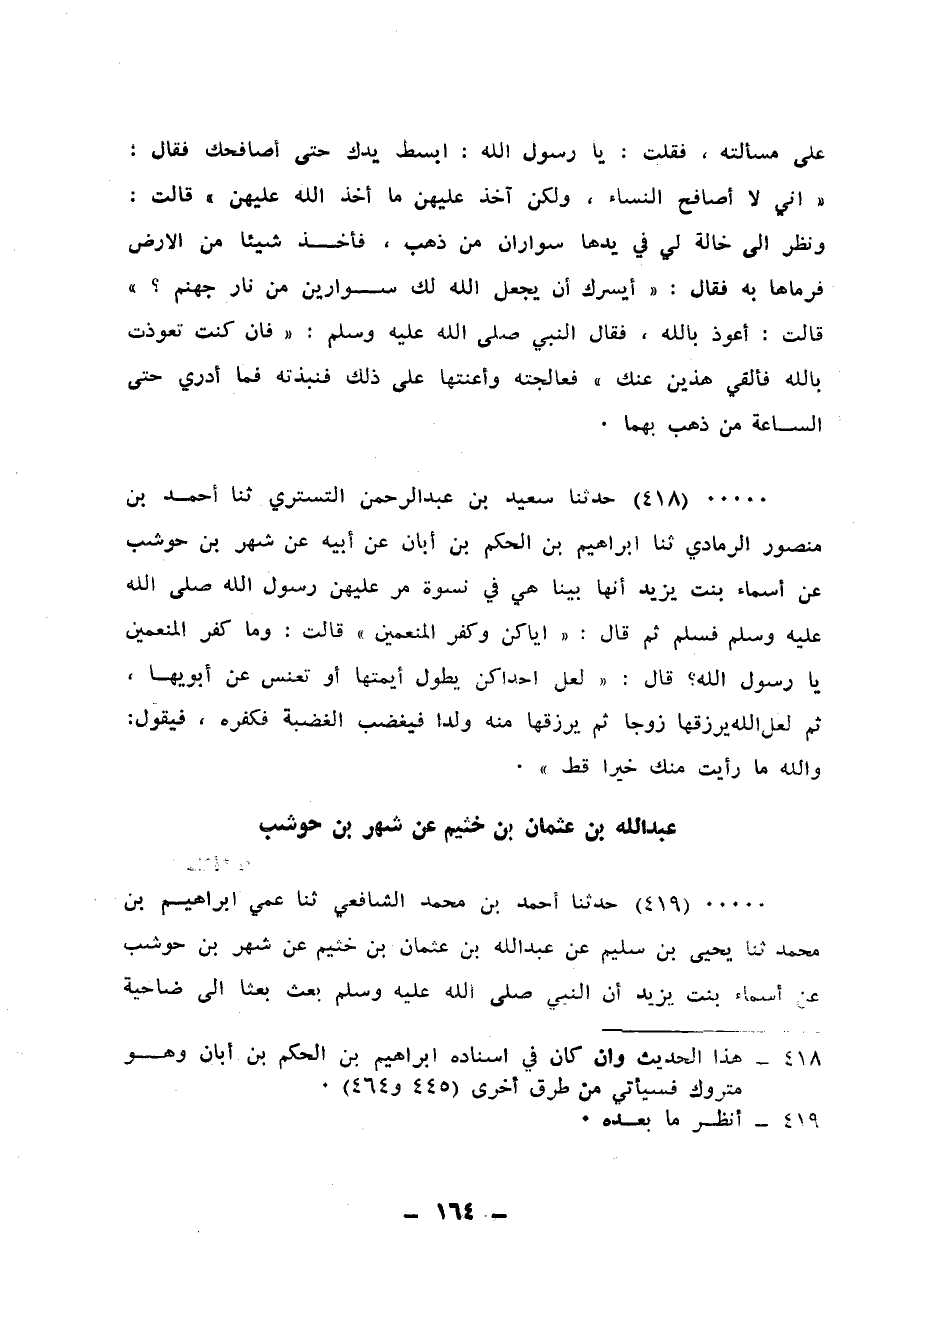 على مسألته ، فقلت : يا رسول الله : ابسط يدك حتى أصافحك فقال :
« اني لا أصافح النساء ، ولكن آخذ عليهن ما أخذ الله عليهن » قالت :
ونظر الى خالة لي في يدها سواران من ذهب ، فأخذ شيئا من الارض
فرماها به فقال : « أيسرك أن يجعل الله لك سوارين من نار جهنم ؟ »
قالت : أعوذ بالله ، فقال النبي صلى الله عليه وسلم : « فان كنت تعوذت
بالله فألقي هذين عنك » فعالجته وأعنتها على ذلك فنبذته فما أدري حتى
الساعة من ذهب بهما ٠
٠٠٠٠٠ (٤١٨) حدثنا سعيد بن عبدالرحمن التستري ثنا أحمد بن
منصور الرمادي ثنا ابراهيم بن الحكم بن أبان عن أبيه عن شهر بن حوشب
عن أسماء بنت يزيد أنها بينا هي في نسوة مر عليهن رسول الله صلى الله
عليه وسلم فسلم ثم قال : « اياكن وكفر المنعمين » قالت : وما كفر المنعمين
يا رسول الله؟ قال : « لعل احداكن يطول أيمتها أو تعنس عن أبويها ،
ثم لعل الله يرزقها زوجا ثم يرزقها منه ولدا فيغضب الغضبة فكفره ، فيقول:
والله ما رأيت منك خيرا قط » ٠
عبدالله بن عثمان بن خثيم عن شهر بن حوشب
٠٠٠٠٠ (٤١٩) حدثنا أحمد بن محمد الشافعي ثنا عمي ابراهيم بن
محمد ثنا يحيى بن سليم عن عبدالله بن عثمان بن خثيم عن شهر بن حوشب
عن أسماء بنت يزيد أن النبي صلى الله عليه وسلم بعث بعثا الى ضاحية
٤١٨ ـ هذا الحديث وان كان في اسناده ابراهيم بن الحكم بن أبان وهو
متروك فسيأتي من طرق أخرى (٤٤٥ و٤٦٤) ٠
٤١٩ ـ أنظر ما بعده ٠
ـ ١٦٤ ـ